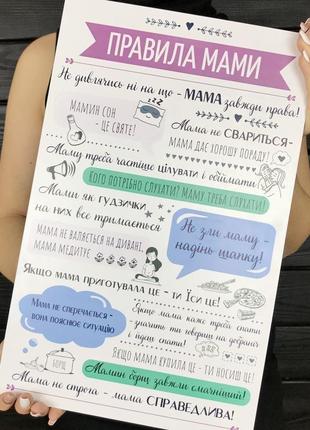 ПРАВИЛА МАМИ
Не дивлячись ні на що - МАМА завжди права!
МАМИН СОН
- ЦЕ СВЯТЕ!
Мама не СВАРИТЬСЯ-
МАМА ДАЄ ХОРОШУ ПОРАДУ!
Маму треба частіше цілувати і обіймати
КОГО ПОТРІБНО СЛУХАТИ? МАМУ ТРЕБА СЛУХАТИ!
Мами як ГУДЗИЧКИ
на них все тримається
Не зли маму -
надінь шапку!
МАМА НЕ ВАЛЯЄТЬСЯ НА ДИВАНІ,
МАМА МЕДИТУЄ
Якщо мама приготувала це - ти Їси це!
Мама не сперечається -
вона пояснює ситуацію
Якщо мама каже треба спати
- значить ти говориш на добраніч
і ідеш спати!
ЯКЩО МАМА КУПИЛА ЦЕ - ТИ НОСИШ ЦЕ!
БОРЩ
Мамин борщ завжди смачніший!
Мама не строга - мама СПРАВЕДЛИВА!